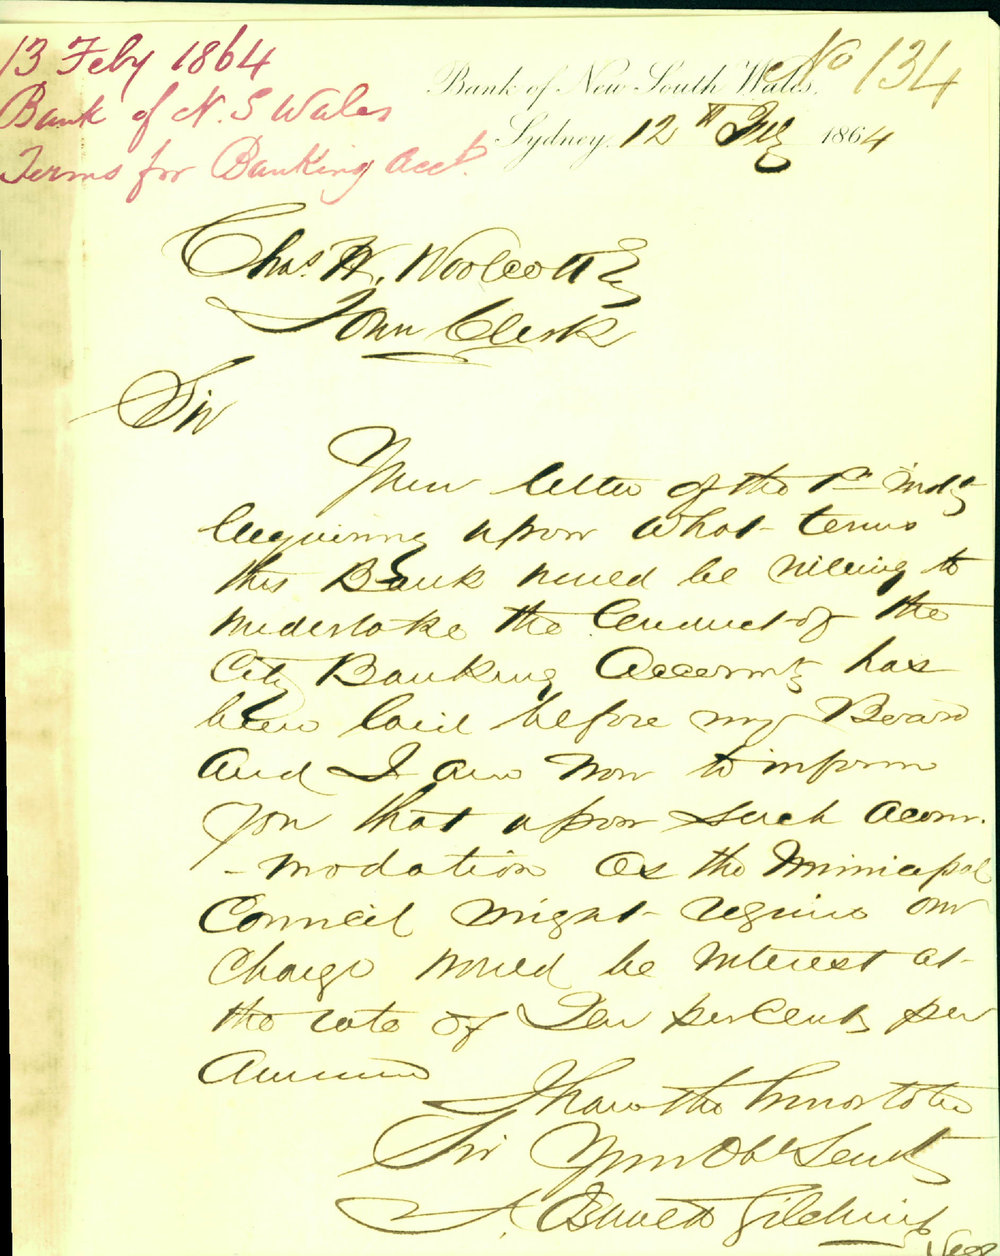 13 Feby 1864
Bank of N. S Wales
Terms for Banking Acct.
No 134
Bank of New South Wales,
Sydney, 12th Feby 1864
Chas. H. Woolcott Esq
Town Clerk
Sir
Your letter of the 1st Inst
enquiring upon what terms
this Bank would be willing to
undertake the Conduct of the
City Banking Account, has
been laid before my Board
and I am now to inform
you that upon such accom
-modation as the Municipal
Council might require our
Charge would be interest at
the rate of Ten per Cent, per
Annum
I have the honor to be
Sir Your Obt Servt
Secy